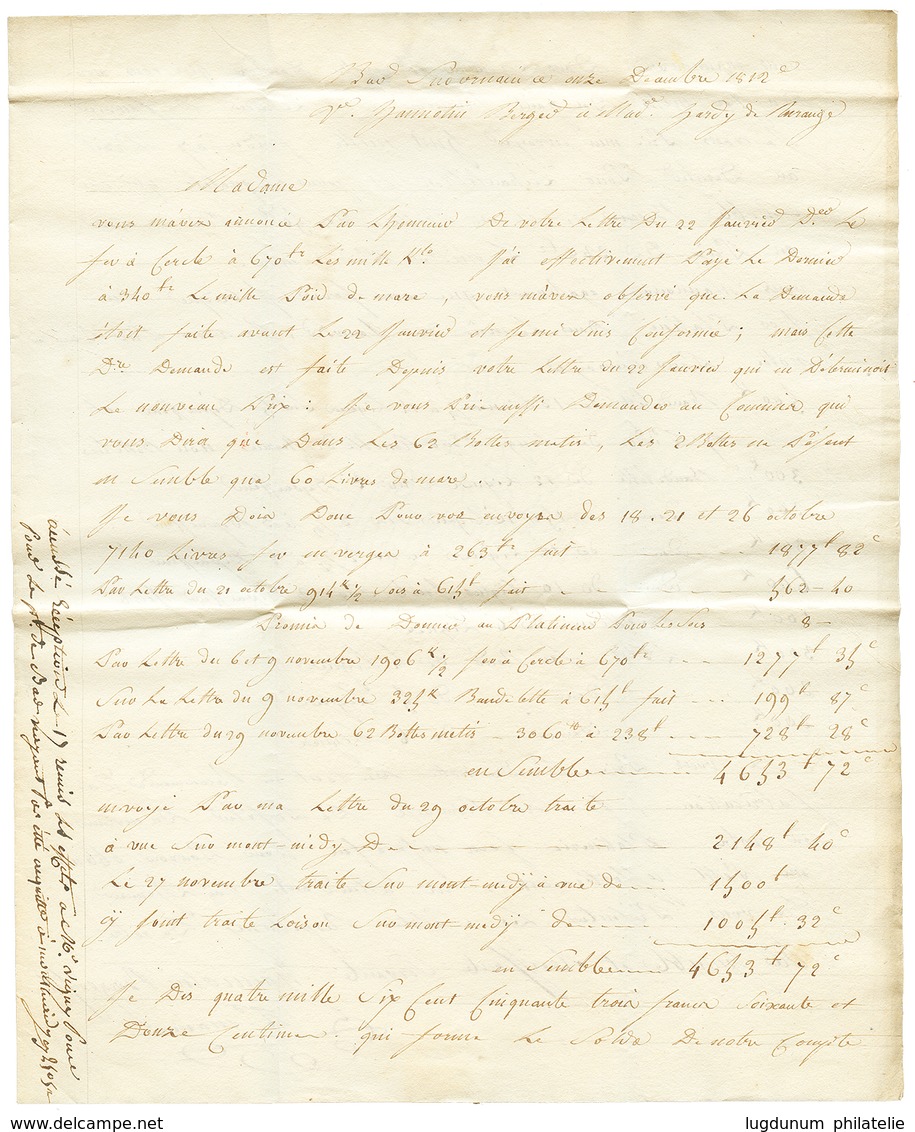 Bar Sur ornain ce onze Décembre 1812
Ve. hannotin Berger à Made. hardy de
Madame
vous m'avez annoncé Par Lhonneur De votre Lettre Du 22 Janvier Der. Le
fer à Cercle à 670 Les mille K. J'ai effectivement Payé Le Dernier
à 340 Le mille Poid de marc, vous m'avez observé que La Demande
étoit faite avant Le 22 Janvier et Je mi Suis Conformé ; mais Cette
Dre Demande est faite Depuis votre Lettre du 22 Janvier qui en Determinoit
Le nouveau Prix : Je vous Prie aussi Demander au Commis qui
vous Dira que Dans Les 62 Bottes metis, Les 2 Bottes ne Pésent
en Semble que 60 Livres de marc.
Je vous Dois Donc Pour vos envoyes des 18. 21 et 26 octobre
7140 Livres fer en verges à 263 fait 1877f 82c
Par Lettre du 21 octobre 914K 1/2 à 615f fait 562 - 40
Promis de Donner au Platineur Pour les 8 -
Par Lettre du 6 et 9 novembre 1906K 1/2 fer à Cercle à 670 1277f 35c
Sur La Lettre du 9 novembre 325K Bandelette à 615f fait 199f 87c
Par Lettre du 29 novembre 62 Bottes metis - 3060 à 238f 728f 28c
en Semble 4653f 72c
envoyé Par ma Lettre du 29 octobre traite
à vue Sur mont-medy De 2148f 40c
Le 27 novembre traite Sur mont-medy à vue de 1500f
cy Joint traite Loison Sur mont-medy de 1005f. 32c
en Semble 4653f 72c
Je Dis quatre mille Six Cent Cinquante trois francs Soixante et
Douze Centimes qui forme Le Solde De notre Compte
accusé Réception Le 17 remis Les effets à Mr. pour
pour Le de Bar n'ayant pas été acquitté à montmedy
lugdunum philatelie
www.delcampe.net